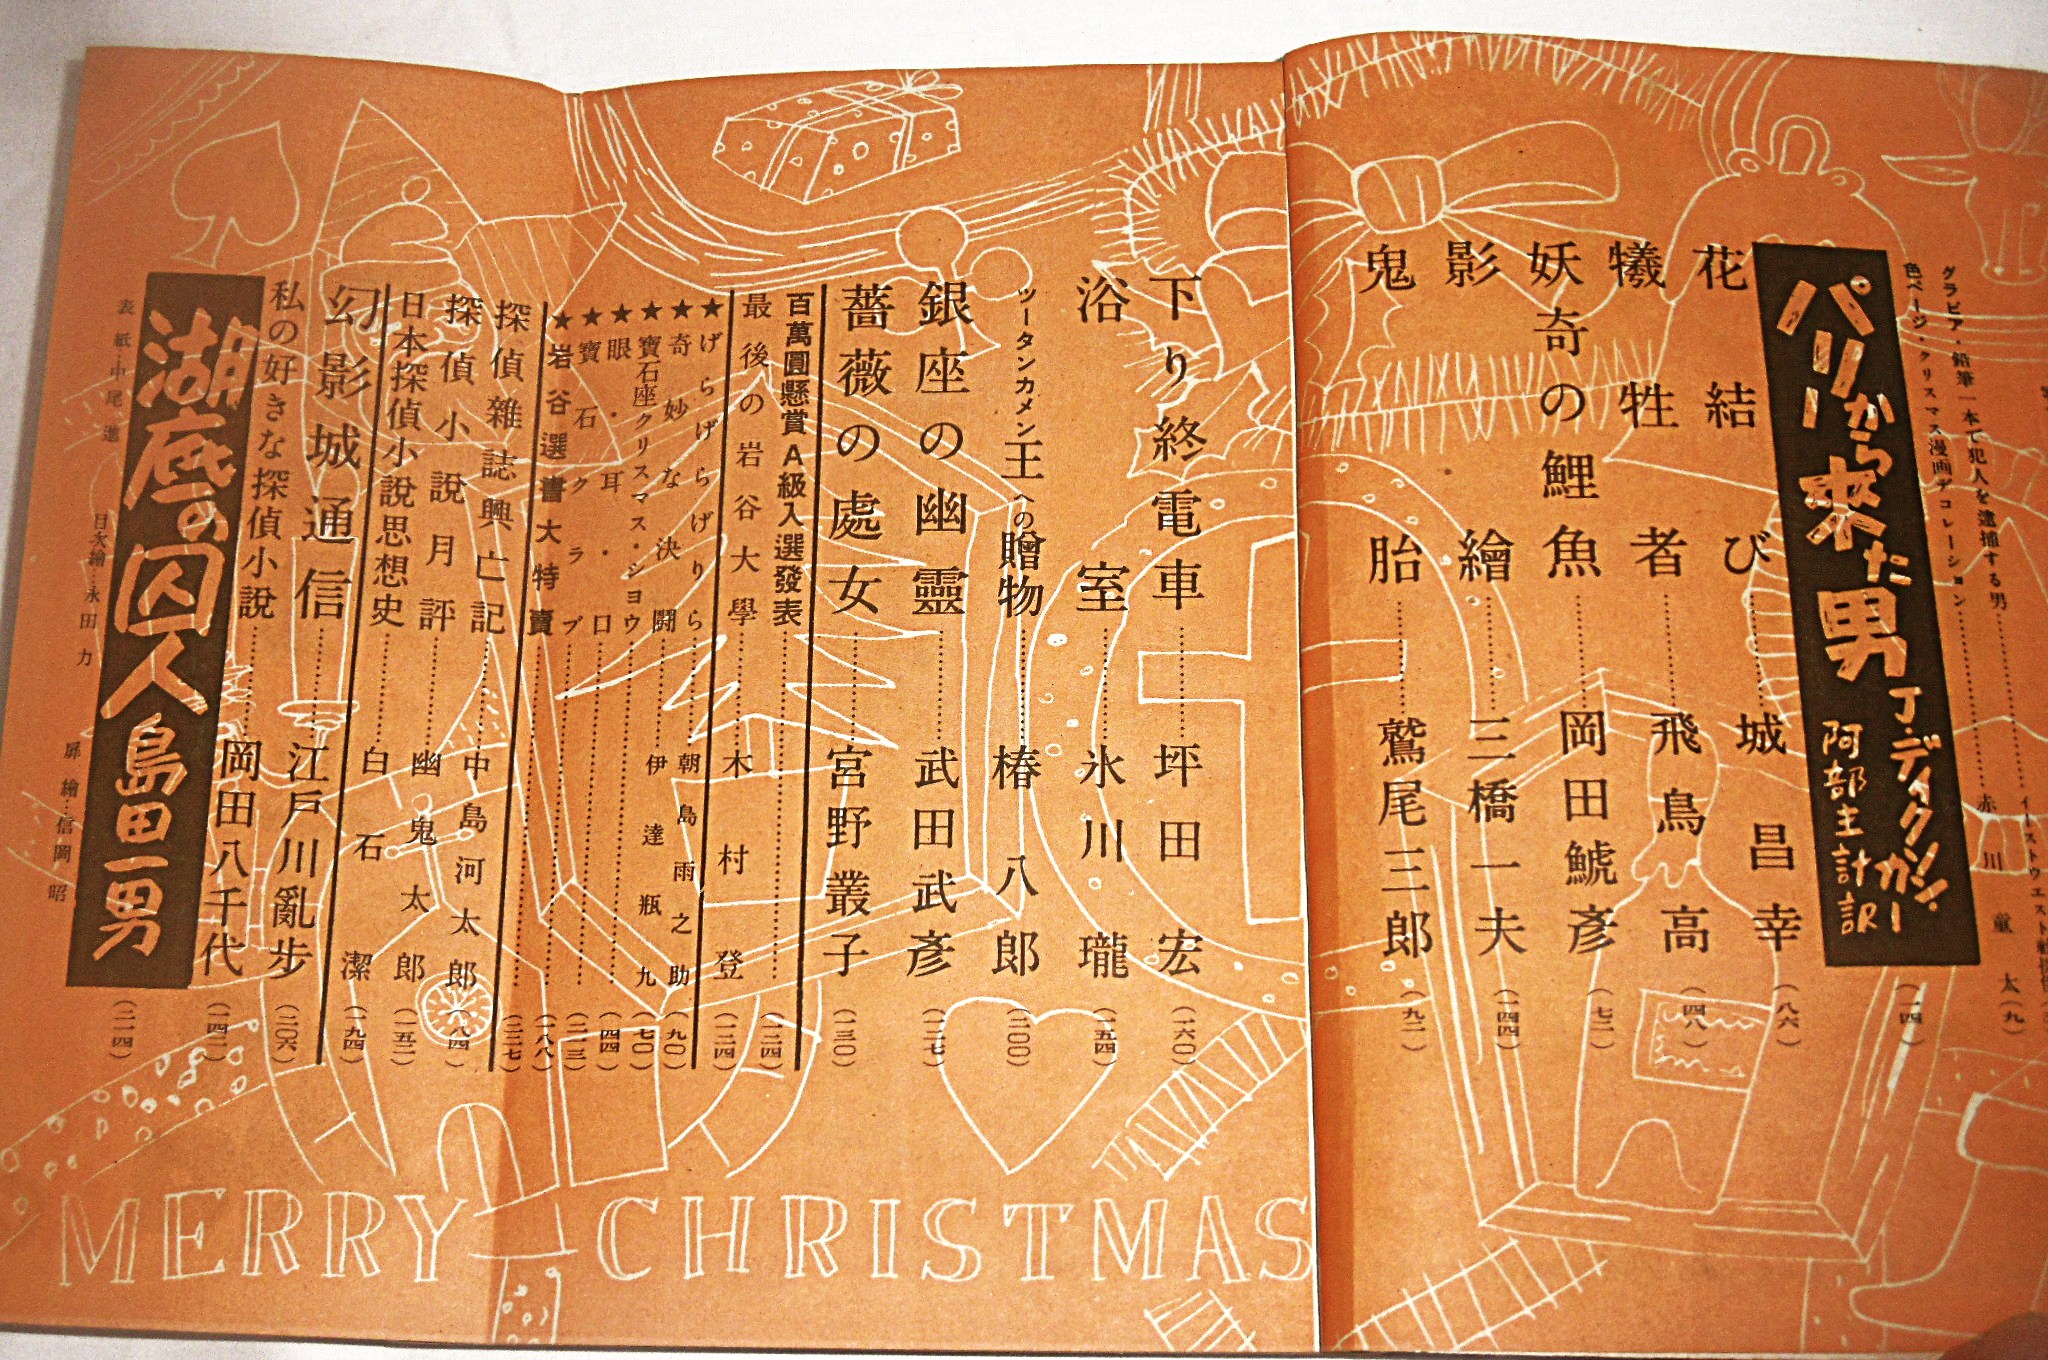 グラビア・鉛筆一本で犯人を逮捕する男
色ページ・クリスマス漫画デコレーション 赤川童太（九）
パリーから来た男 J・ディクソン・カー 阿部主計訳（一四）
花結び 城昌幸（八六）
犠牲者 飛鳥高（四八）
妖奇の鯉魚 岡田鯱彦（七二）
影繪 三橋一夫（一四四）
鬼胎 鷲尾三郎（九二）
下り終電車 坪田宏（一六〇）
浴室 氷川瓏（一五四）
ツータンカメン王への贈物 椿八郎（二〇〇）
銀座の幽靈 武田武彦（一二七）
薔薇の處女 宮野叢子（一三〇）
百萬圓懸賞A級入選發表（二二四）
最後の岩谷大學 木村登（一二四）
★げらげらげりら 朝島雨之助（九〇）
★奇妙な決闘 伊達瓶九（七〇）
★寶石座クリスマス・シヨウ（四四）
★眼・耳・口（二一三）
★寶石クラブ（一八八）
★岩谷選書大特賣（三二七）
探偵雜誌興亡記 中島河太郎
探偵小說月評 幽鬼太郎（一五二）
日本探偵小說思想史 白石潔（一九四）
幻影城通信 江戸川亂步（二〇六）
私の好きな探偵小說 岡田八千代（一四二）
湖底の囚人 島田一男（二一四）
表紙…中尾進
目次繪…永田力
扉繪…信岡昭
MERRY CHRISTMAS